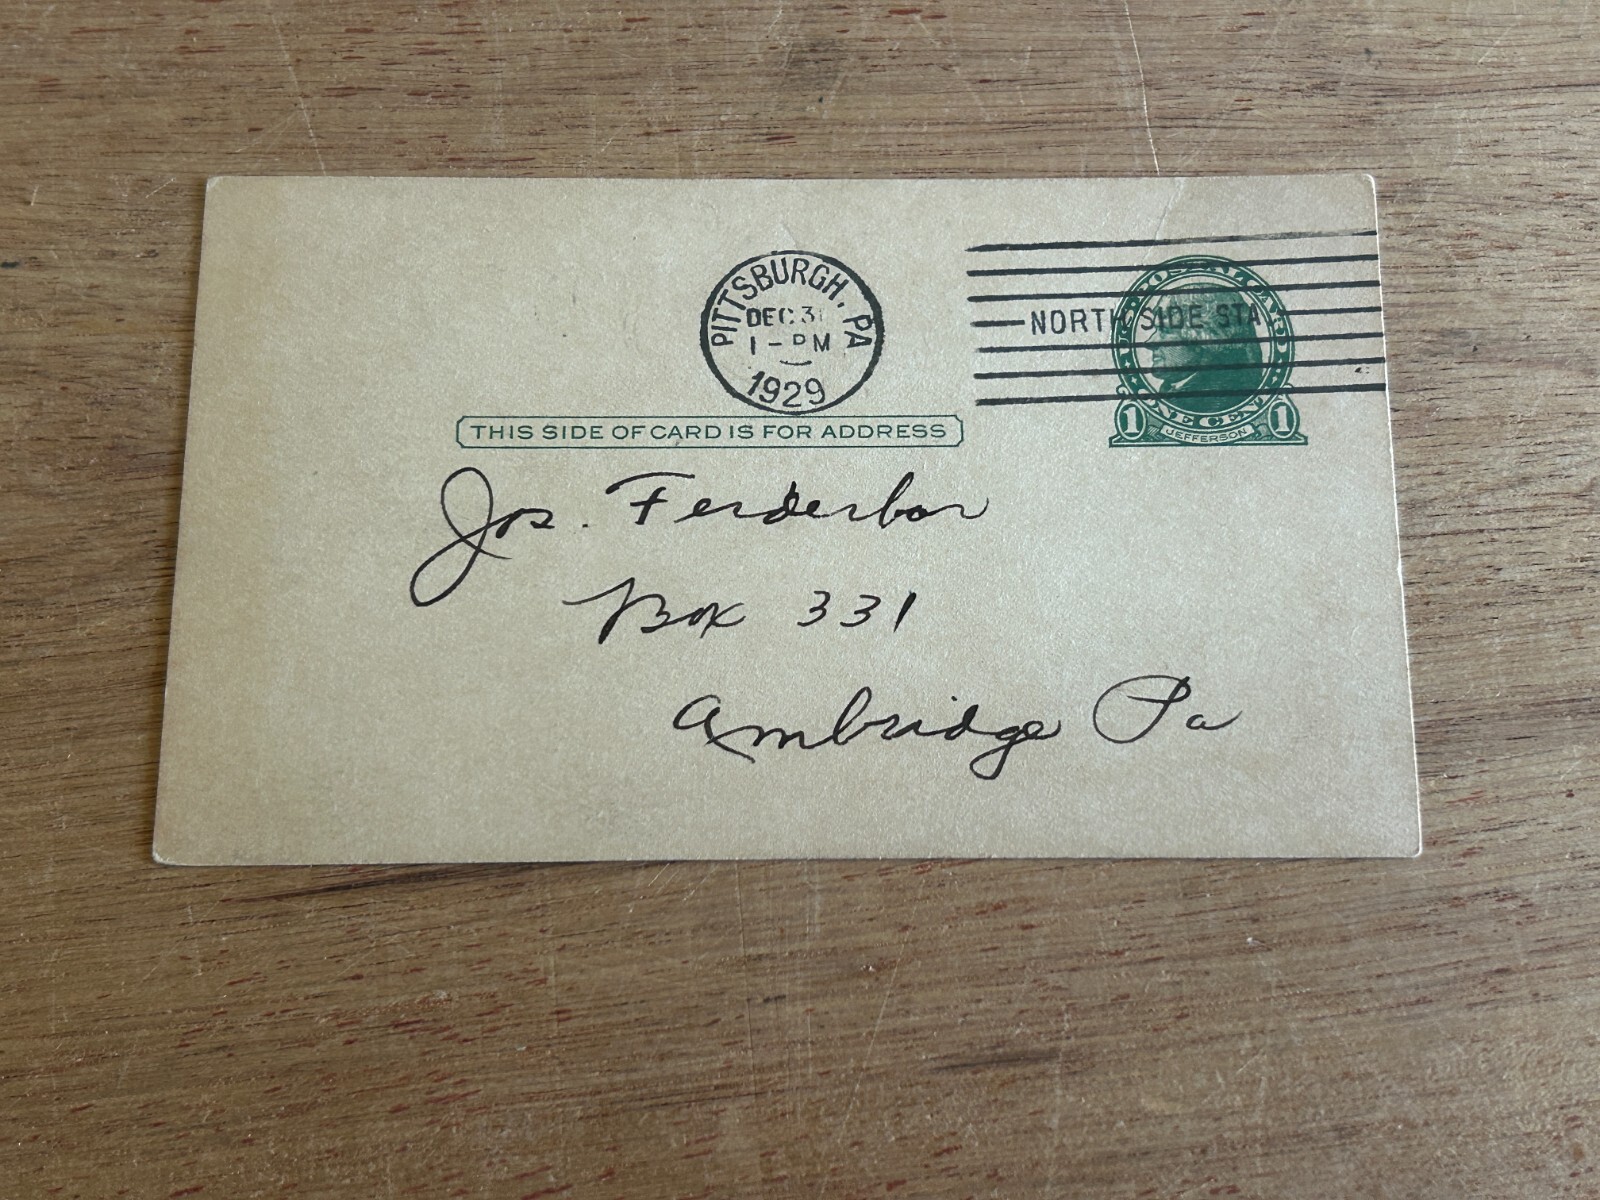 PITTSBURGH, PA
DEC 31
1 - PM
1929
NORTH SIDE STA
U.S. POSTAL CARD
ONE CENT
1 JEFFERSON 1
THIS SIDE OF CARD IS FOR ADDRESS
Jos. Ferderbar
Box 331
Ambridge Pa